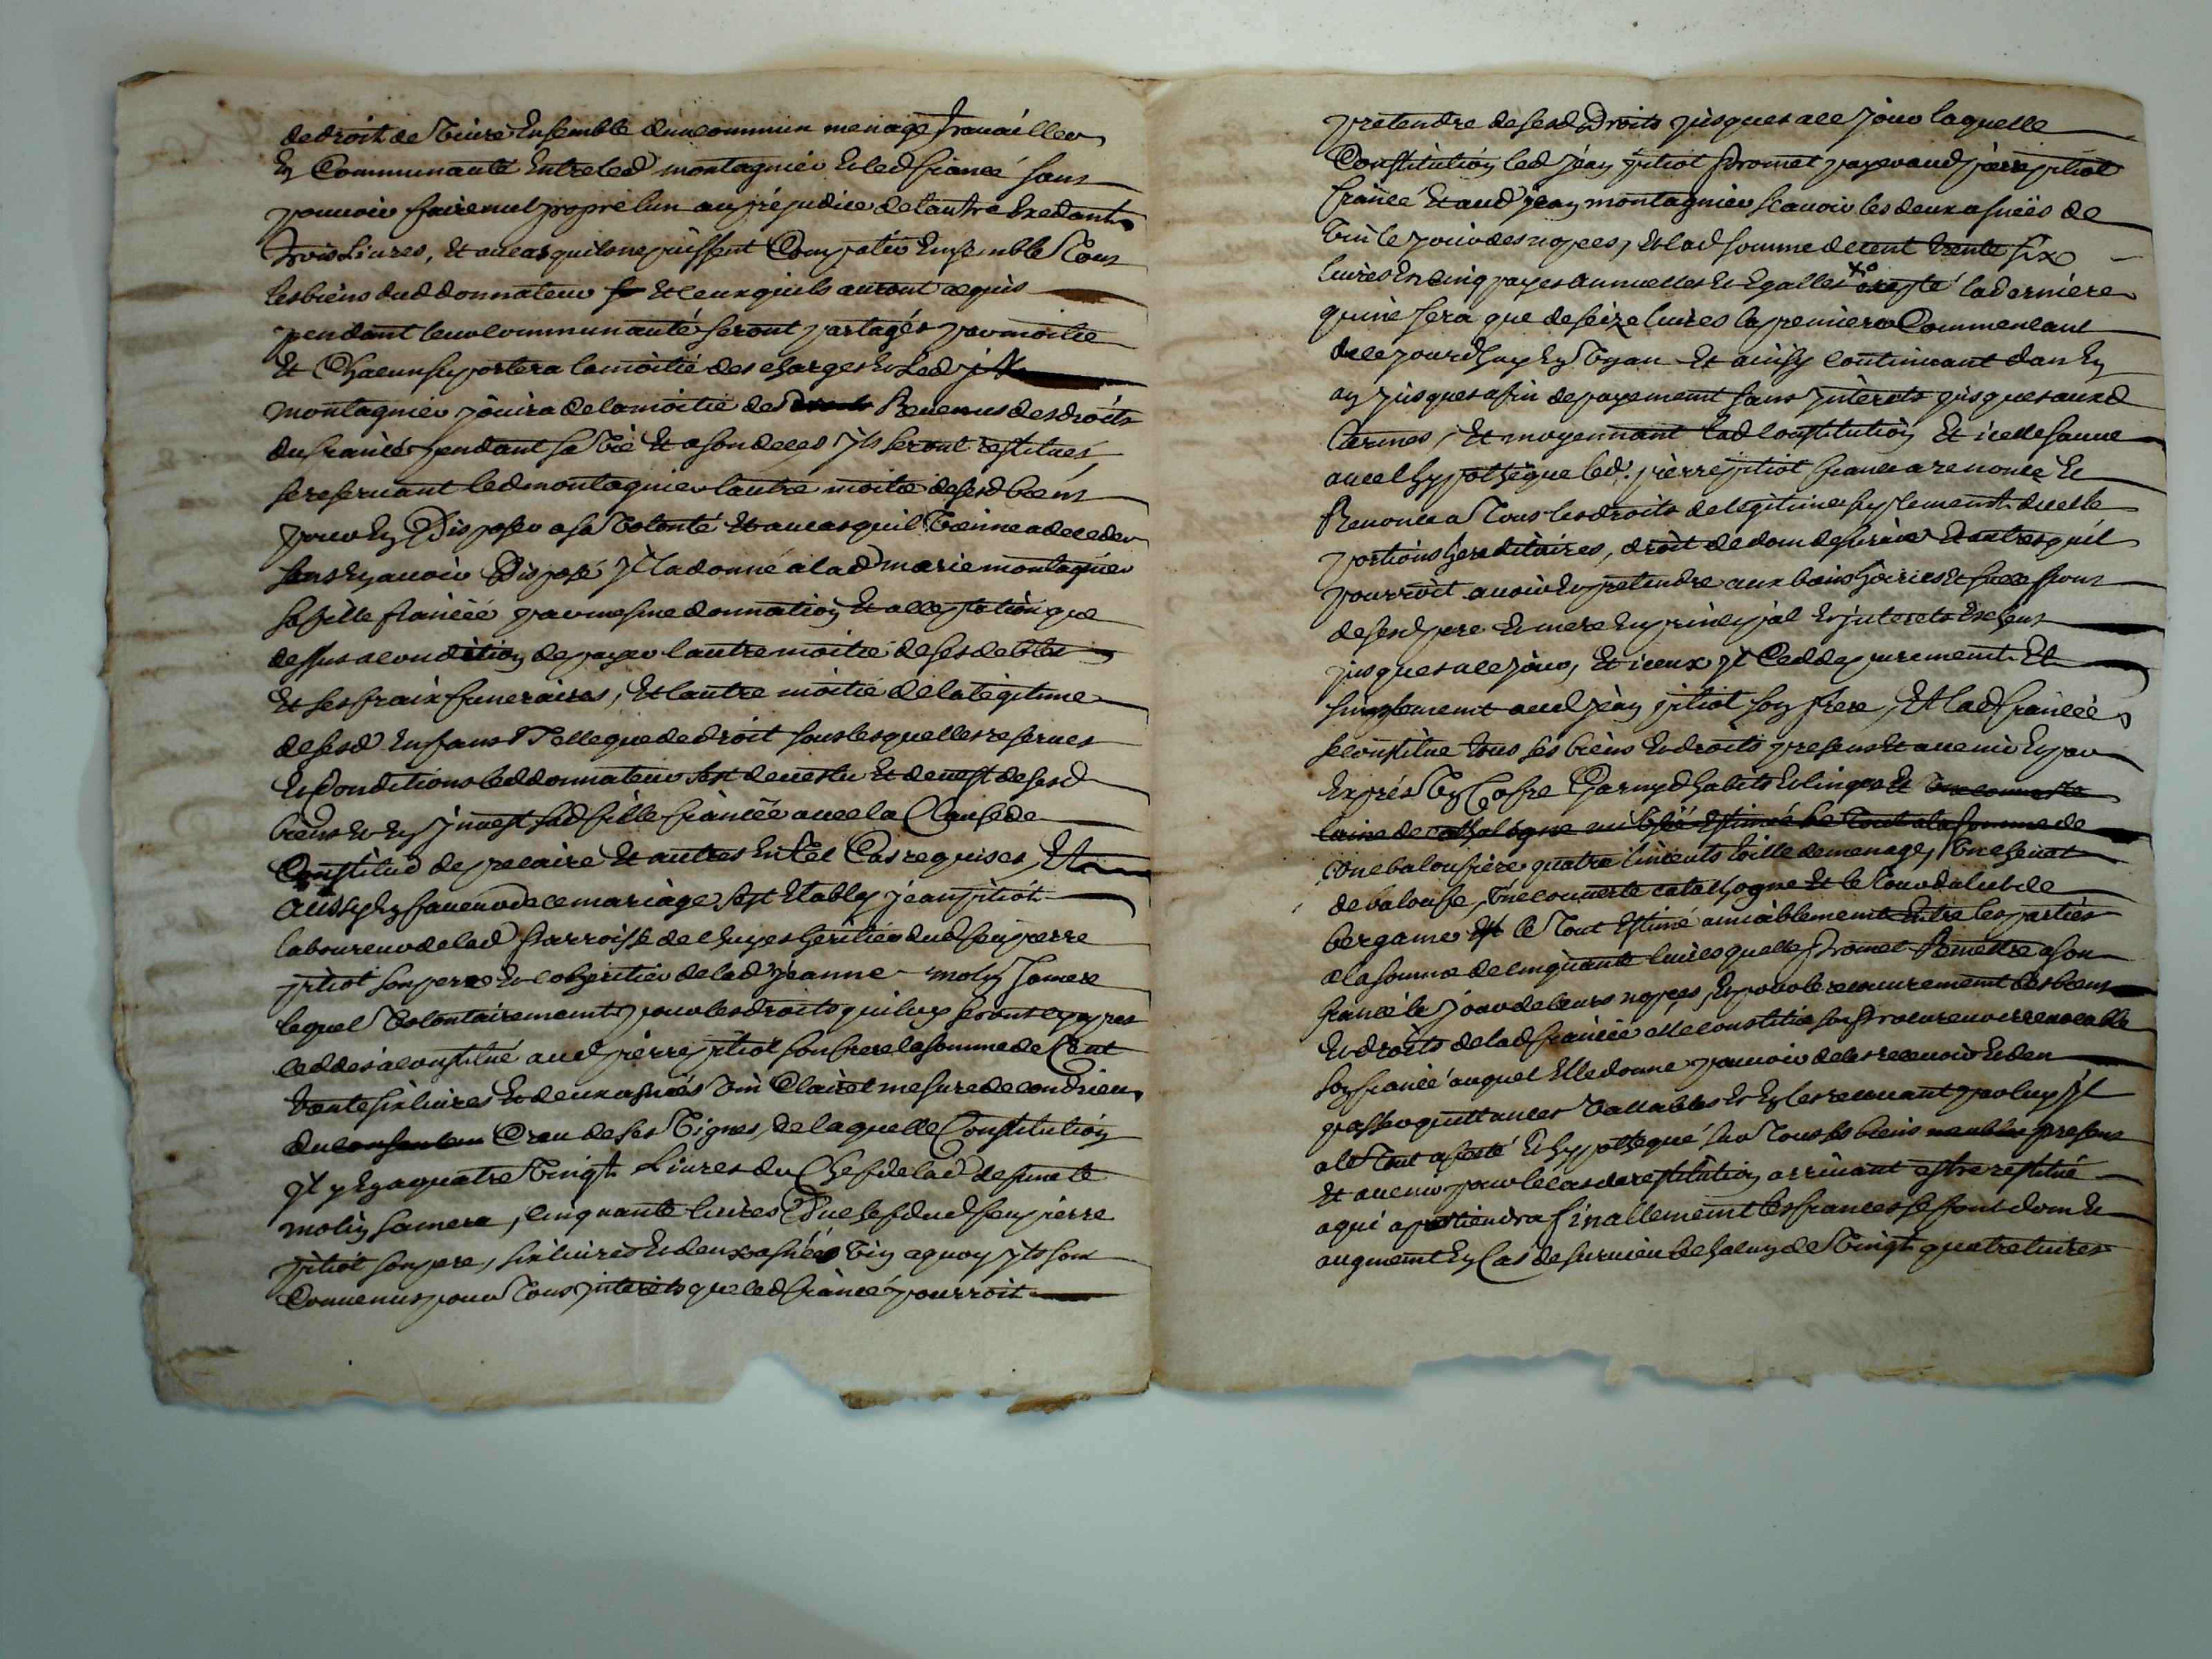 de droit de Vivre Ensemble dun commun menage travailler
En Communauté Entre led montagnier Et led fiancé sans
pouvoir faire nul propre lun au préjudice de lautre Exedant
trois Livres, Et au cas quils ne puissent Compatir Ensemble tous
les biens dud donnateur Et ceux quils auront acquis
pendant leur communauté seront partagés par moitié
Et Chacun suportera la moitié des charges Et led
montagnier jouira de la moitié des Revenus des droits
du fiancé pendant sa Vie Et a son deces ils seront restitués
se reservant led montagnier lautre moitié de sesd biens
pour En Disposer a sa Volonté Et au cas quil Vienne a deceder
sans En avoir Disposé Il a donné a lad marie montagnier
sa fille fiancée par mesme donnation Et acceptation que
dessus a condition de payer lautre moitié de ses debtes
Et ses fraix funeraires, Et lautre moitié de la legitime
de sesd Enfans Telle que de droit sous lesquelles reserves
Et Conditions led donnateur sest devestu Et devest de sesd
biens Et En Investi sad fille fiancée avec la Clause de
Constitut de precaire Et autres En tel Cas requises, Et
aussy En faveur de ce mariage sest Etably jean pitiot
laboureur de lad parroisse de chuyes heritier dud feu pierre
pitiot son pere Et coheritier de lad jeanne molin sa mere
lequel Volontairement pour les droits qui luy seront cy apres
ceddés a constitué aud pierre pitiot son frere la somme de Cent
trente six livres Et deux asnées Vin Clairet mesure de condrieu
du Creu de ses Vignes, de laquelle Constitution
Il y En a quatre Vingt Livres du Chef de lad defunte
molin sa mere, cinquante livres Du chef dud feu pierre
pitiot son pere, six livres Et deux asnées Vin a quoy ils sont
Convenus pour Tous interets que led fiancé pourroit
pretendre de sesd Droits jusques a ce jour laquelle
Constitution led jean pitiot promet payer aud pierre pitiot
fiancé Et aud jean montagnier scavoir les deux asnées de
Vin le jour des nopces, Et lad somme de cent trente six
livres En cinq payes annuelles Et Egalles Excepté la derniere
qui ne sera que de seize livres la premiere Commencant
de ce jourdhuy En Vn an Et ainsy continuant dan En
an jusques a fin de payement sans interets jusques auxd
termes, Et moyennant lad Constitution Et icelle sauve
avec lhyppotheque led pierre pitiot fiancé a renoncé Et
Renonce a Tous les droits de legitime suplement dicelle
portions hereditaires, droit de dom de survie Et autres quil
pourroit avoir Et pretendre aux biens hoiries Et successions
de sesd pere Et mere En principal Et interets Echeus
jusques a ce jour, Et iceux Il Cedde purement Et
simplement aud jean pitiot son frere, Et lad fiancée
se constitue tous ses biens Et droits presens Et avenir Et par
Exprés Vn Coffre Garny dhabits Et linges Et Vne couverte
laine de cathalogne Estimé le tout a la somme de
Vne balousiere quatre linceuts toille de menage, Vne
de balouse, Vne couverte catalhogne Et le tour du lict de
bergame le Tout Estimé amiablement Entre les parties
a la somme de cinquante livres quelle promet Remettre a son
fiancé le jour de leurs nopces, Et pour le recouvrement des biens
Et droits de lad fiancée elle constitue son procureur irrevocable
son fiancé auquel Elle donne pouvoir de les recevoir Et den
passer quittances Vallables Et En les recevant par luy Il
a le Tout afecté Et hyppothequé sur Tous ses biens presens
Et avenir pour le cas de restitution arrivant estre restitué
a qui apartiendra finallement les fiancés se sont donné
augment En Cas de survie de Vingt quatre livres